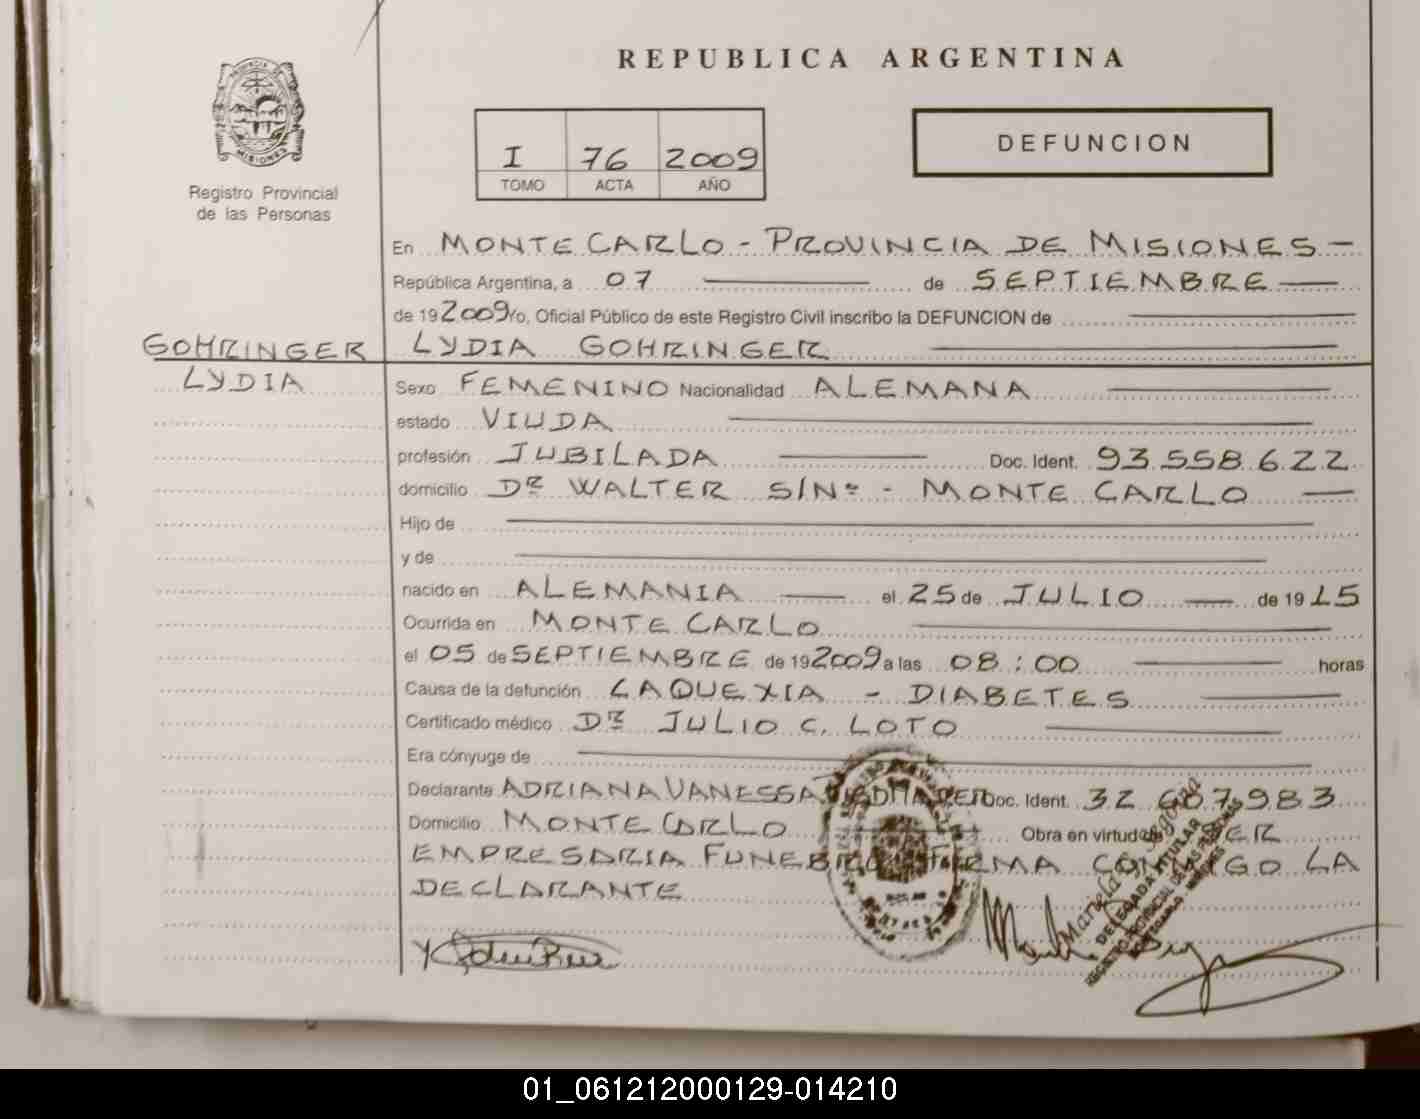 REPUBLICA ARGENTINA
PROVINCIA DE
MISIONES
Registro Provincial
de las Personas
I 76 2009
TOMO ACTA AÑO
DEFUNCION
En MONTE CARLO - PROVINCIA DE MISIONES -
República Argentina, a 07 de SEPTIEMBRE
de 19 2009 Yo, Oficial Público de este Registro Civil inscribo la DEFUNCION de
GOHRINGER LYDIA GOHRINGER
LYDIA
Sexo FEMENINO Nacionalidad ALEMANA
estado VIUDA
profesión JUBILADA Doc. Ident. 93.558.622
domicilio DR WALTER S/Nº - MONTE CARLO
Hijo de
y de
nacido en ALEMANIA el 25 de JULIO de 19 15
Ocurrida en MONTE CARLO
el 05 de SEPTIEMBRE de 19 2009 a las 08:00 horas
Causa de la defunción CAQUEXIA - DIABETES
Certificado médico DR JULIO C. LOTO
Era cónyuge de
Declarante ADRIANA VANESSA Doc. Ident. 32.687.983
Domicilio MONTE CARLO Obra en virtud de SER
EMPRESARIA FUNEBRE FIRMA CONMIGO LA
DECLARANTE
DELEGADA TITULAR
REGISTRO PROVINCIAL DE LAS PERSONAS
01_061212000129-014210